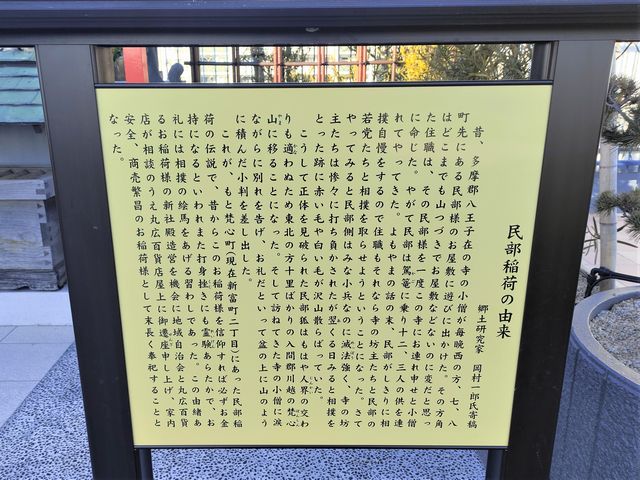 民部稲荷の由来
郷土研究家 岡村一郎氏寄稿
昔、多摩郡八王子在の寺の小僧が毎晩西の方、七、八
町先にある民部様のお屋敷に遊びに出かけた。その方角
はどこまでも山つづきでお屋敷などないのに変だと思っ
た住職は、その民部様を一度この寺にお連れ申せと小僧
に命じた。やがて民部は駕篭に乗り十二、三人の供を連
れてやってきた。よもやまの話の末、民部がしきりに相
撲自慢をするので住職もそれなら寺の坊主たちと民部の
若党たちと相撲を取らせようということになった。さて
やってみると民部側はみな小兵なのに滅法強く、寺の坊
主たちは惨々に打ち負かされたが翌くる日みると相撲を
とった跡に赤い毛や白い毛が沢山散らばっていた。
こうして正体を見破られた民部狐はもはや人界の交わ
りも適わぬため東北の方十里ばかりの入間郡川越の梵心
山に移ることになった。そして訪ねてきた寺の小僧に涙
ながらに別れを告げ、お礼だといって盆の上に山のよう
に積んだ小判を差し出した。
これが、もと梵心町(現在新富町二丁目)にあった民部稲
荷の伝説で、昔からこのお稲荷様を信仰すれば必ずお金
持になるといわれまた打身挫きにも霊験あらたかで、お
礼には相撲の絵馬をあげる習わしであった。この由緒あ
るお稲荷様の新社殿造営を機会に地域自治会と丸広百貨
店が相談のうえ丸広百貨店屋上に御遷座申し上げ、家内
安全、商売繁昌のお稲荷様として末長く奉祀することと
なった。